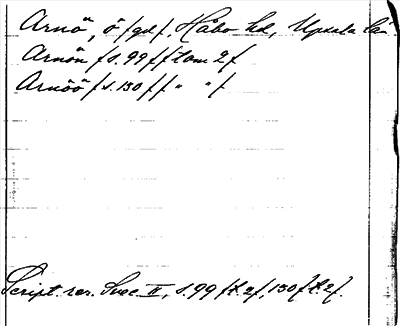 Arnö, ö /gd/, Håbo hd, Upsala län.
Arnön /s. 99/ /tom 2/
Arnöö /s. 130/ / " " /
Script. rer. Svec. II, s. 99 /t. 2/, 130 /t. 2/.